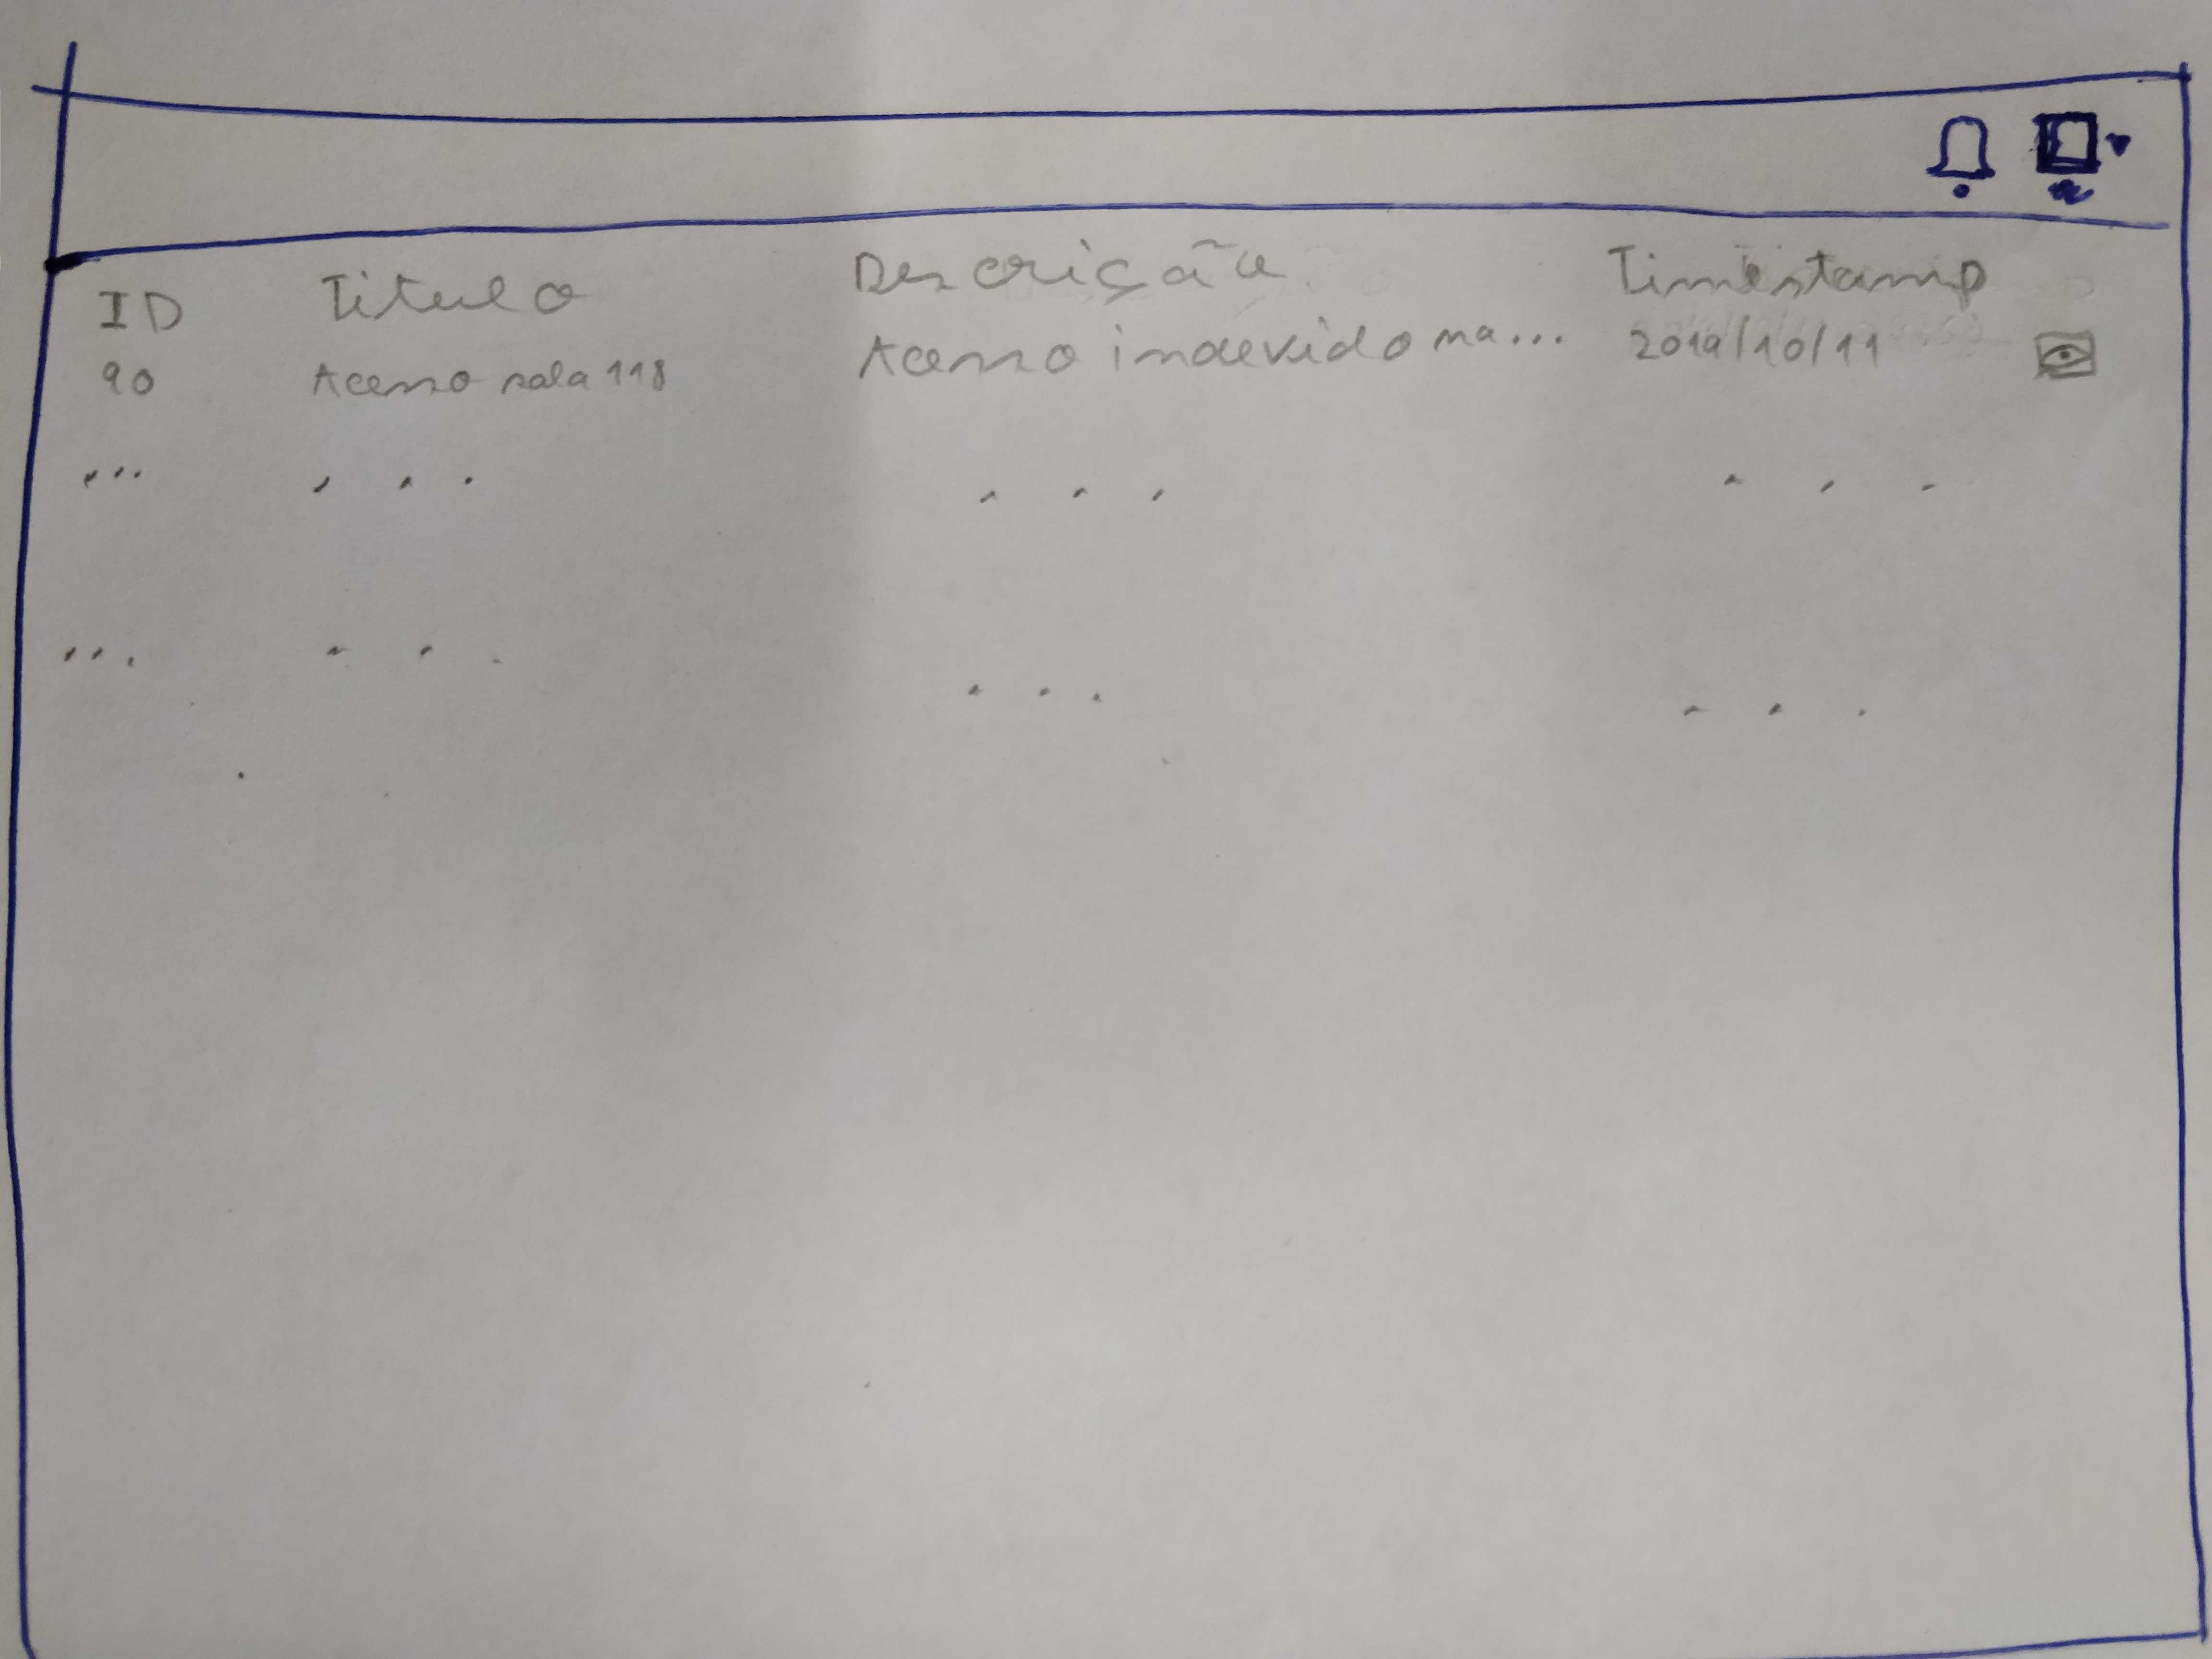 ID Titulo Descrição Timestamp
90 Acesso sala 118 Acesso indevido na... 2019/10/11
... ... ... ...
... ... ... ...